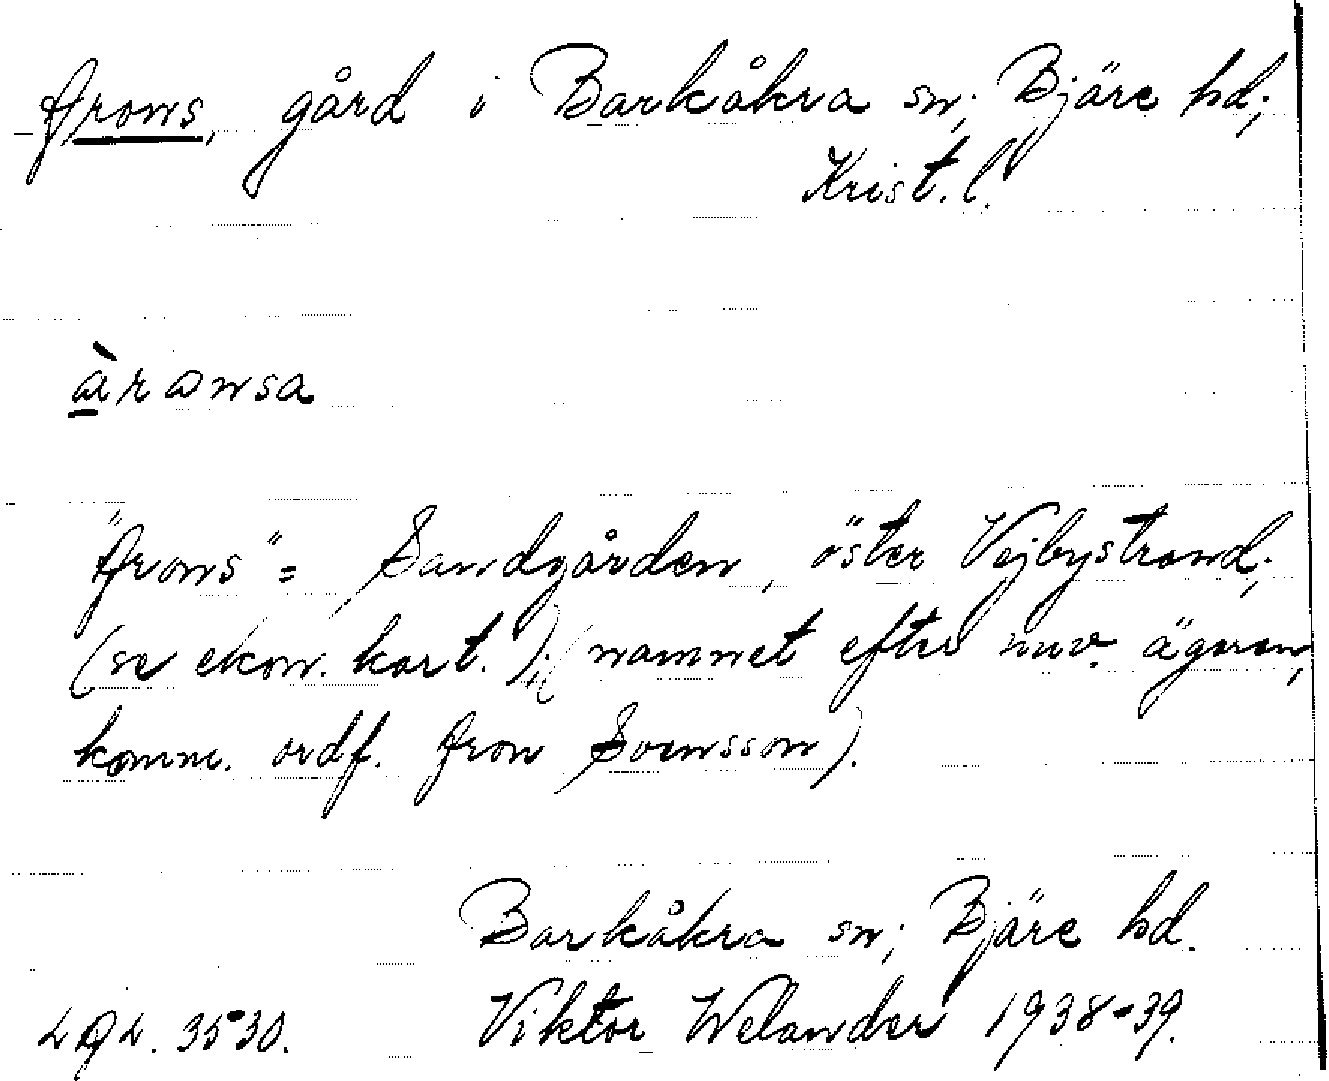 Arons, gård i Barkåkra sn; Bjäre hd;
Krist. l.
àransa
"Arons" = Sandgården, öster Vejbystrand;
(se ekon. kart.); (namnet efter nuv. ägaren,
komm. ordf. Aron Svensson).
Barkåkra sn; Bjäre hd.
LAL. 3530. Viktor Welander 1938-39.